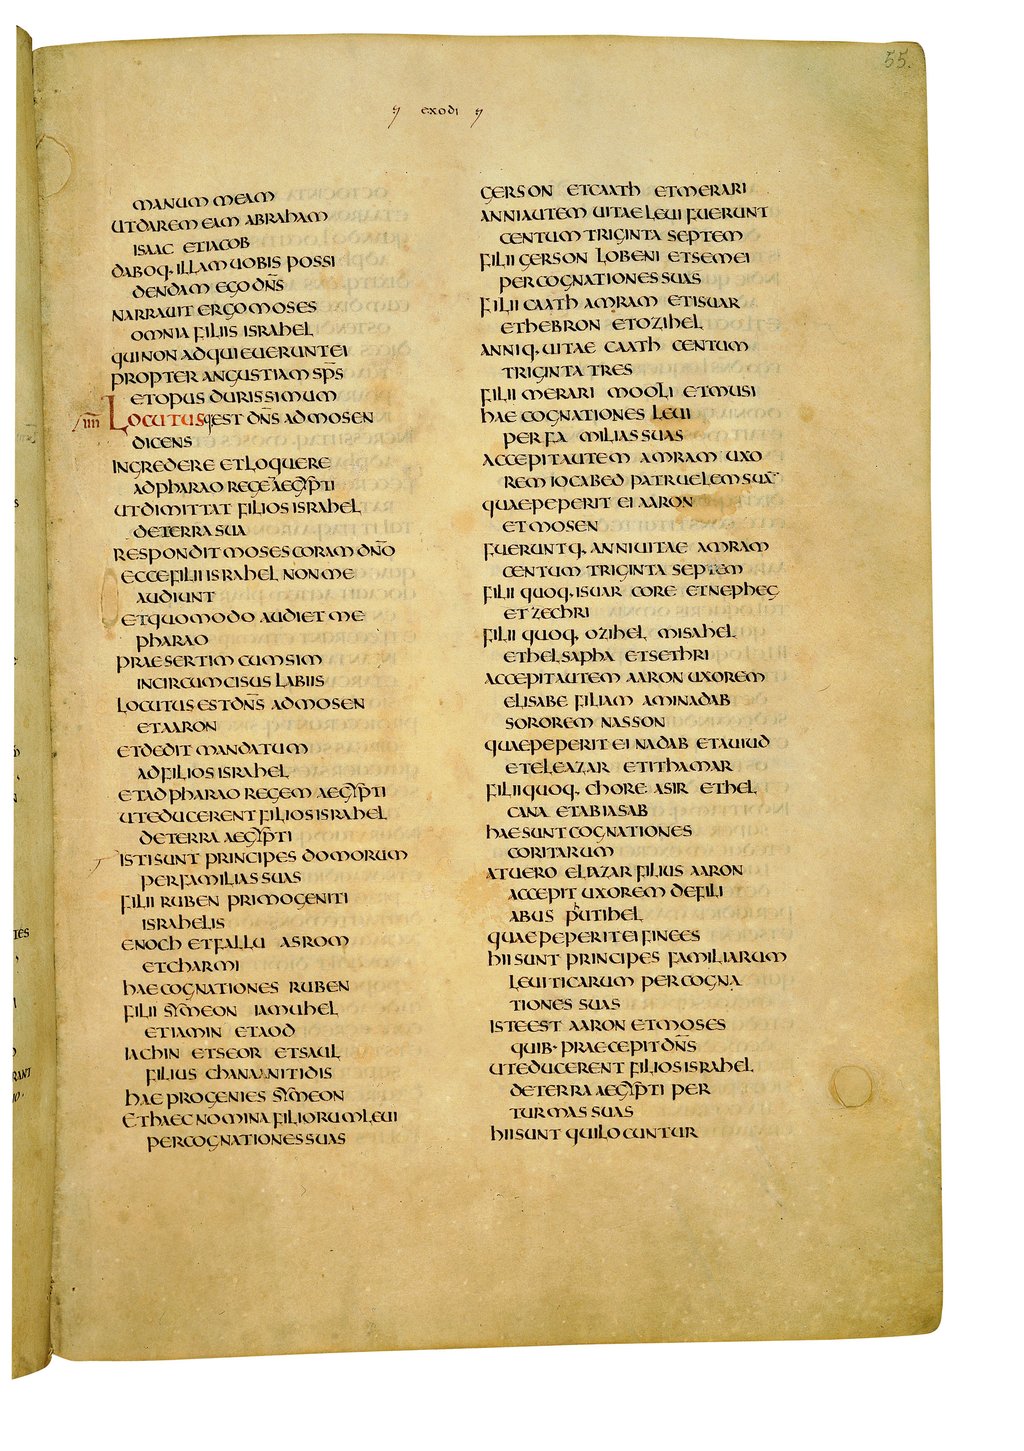 55.
exodi
manum meam
ut darem eam abraham
isaac et iacob
daboq. illam uobis possi
dendam ego dn̄s
narrauit ergo moses
omnia filiis israhel
qui non adquieuerunt ei
propter angustiam sp̄s
et opus durissimum
iiii Locutusq. est dn̄s ad mosen
dicens
ingredere et loquere
ad pharao rege aegypti
ut dimittat filios israhel
de terra sua
respondit moses coram dn̄o
ecce filii israhel non me
audiunt
et quomodo audiet me
pharao
praesertim cum sim
incircumcisus labiis
locutus est dn̄s ad mosen
et aaron
et dedit mandatum
ad filios israhel
et ad pharao regem aegypti
ut educerent filios israhel
de terra aegypti
isti sunt principes domorum
per familias suas
filii ruben primogeniti
israhelis
enoch et fallu asrom
et charmi
hae cognationes ruben
filii symeon iamuhel
et iamin et aod
iachin et seor et saul
filius chananitidis
hae progenies symeon
et haec nomina filiorum leui
per cognationes suas
gerson et caath et merari
anni autem uitae leui fuerunt
centum triginta septem
filii gerson lobeni et semei
per cognationes suas
filii caath amram et isuar
et hebron et ozihel
anniq. uitae caath centum
triginta tres
filii merari mooli et musi
hae cognationes leui
per familias suas
accepit autem amram uxo
rem iocabed patruelem suā
quae peperit ei aaron
et mosen
fueruntq. anni uitae amram
centum triginta septem
filii quoq. isuar core et nepheg
et zechri
filii quoq. ozihel misahel
et helsapha et sethri
accepit autem aaron uxorem
elisabe filiam aminadab
sororem nasson
quae peperit ei nadab et auiud
et eleazar et ithamar
filii quoq. chore asir et hel
cana et abiasab
hae sunt cognationes
coritarum
at uero eliazar filius aaron
accepit uxorem de fili
abus phutihel
quae peperit ei finees
hii sunt principes familiarum
leuiticarum per cogna
tiones suas
iste est aaron et moses
quib. praecepit dn̄s
ut educerent filios israhel
de terra aegypti per
turmas suas
hii sunt qui locuntur